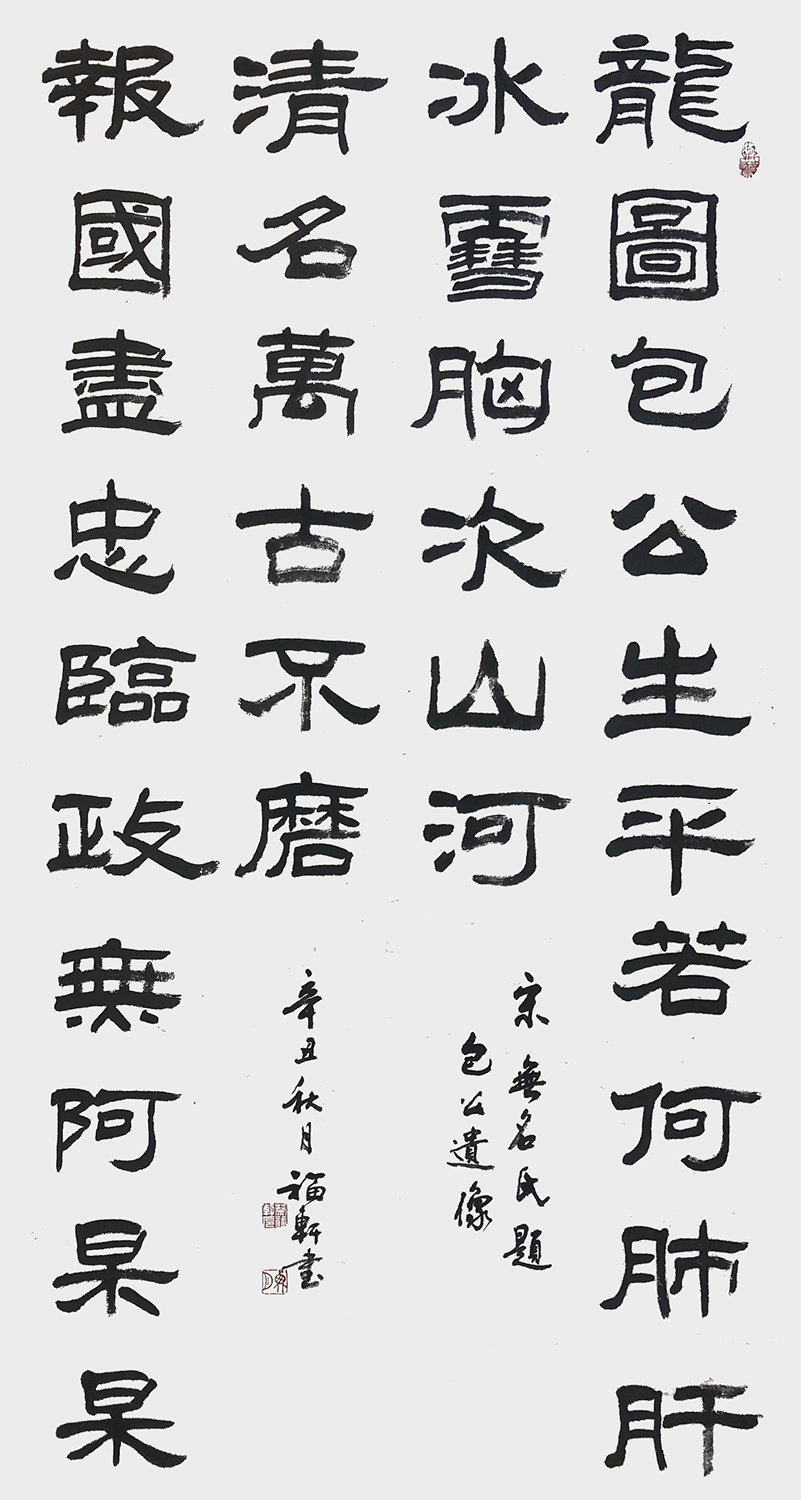 龍圖包公生平若何肺肝
冰雪胸次山河
報國盡忠臨政無阿杲杲
清名萬古不磨
宋無名氏題
包公遺像
辛丑秋月福軒書